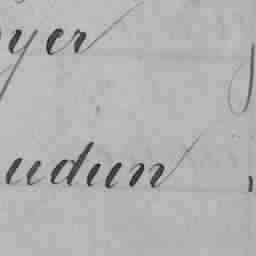 yer
udun